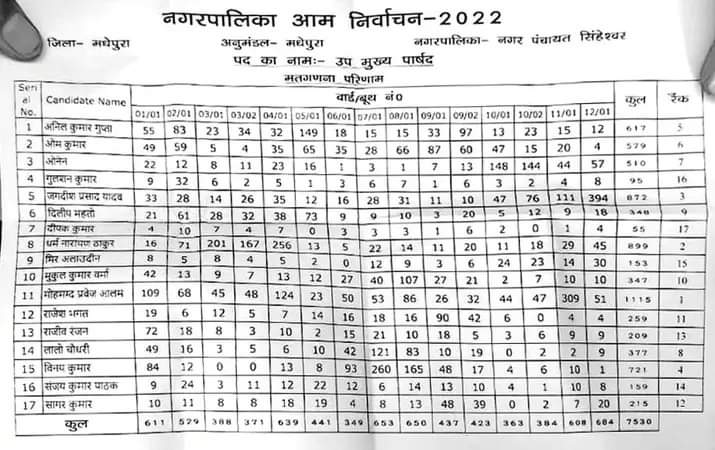 नगरपालिका आम निर्वाचन-2022
जिला- मधेपुरा अनुमंडल- मधेपुरा नगरपालिका- नगर पंचायत सिंहेश्वर
पद का नामः- उप मुख्य पार्षद
मतगणना परिणाम
Seri al No. Candidate Name वार्ड/बूथ नं0 कुल रैंक
01/01 02/01 03/01 03/02 04/01 05/01 06/01 07/01 08/01 09/01 09/02 10/01 10/02 11/01 12/01
1 अनिल कुमार गुप्ता 55 83 23 34 32 149 18 15 15 33 97 13 23 15 12 617 5
2 ओम कुमार 49 59 5 4 35 65 35 28 66 87 60 47 15 20 4 579 6
3 ओनेन 22 12 8 11 23 16 1 3 1 7 13 148 144 44 57 510 7
4 गुलशन कुमार 9 32 6 2 5 1 3 6 7 1 6 3 2 4 8 95 16
5 जगदीश प्रसाद यादव 33 28 14 26 35 12 16 28 31 11 10 47 76 111 394 872 3
6 दिलीप महतो 21 61 28 32 38 73 9 9 10 3 20 5 12 9 18 348 9
7 दीपक कुमार 4 10 7 4 7 0 3 3 3 1 6 2 0 1 4 55 17
8 धर्म नारायण ठाकुर 16 71 201 167 256 13 5 22 14 11 20 11 18 29 45 899 2
9 मिर अलाउदीन 8 5 8 4 5 2 0 12 9 3 6 24 23 14 30 153 15
10 मुकुल कुमार वर्मा 42 13 9 7 13 12 27 40 107 27 21 2 7 10 10 347 10
11 मोहमम्द प्रवेज आलम 109 68 45 48 124 23 50 53 86 26 32 44 47 309 51 1115 1
12 राजेश भगत 19 6 12 5 7 14 16 18 16 90 42 6 0 4 4 259 11
13 राजीव रंजन 72 18 8 3 10 2 15 21 10 18 5 3 6 9 9 209 13
14 लालो चौधरी 49 16 3 5 6 10 42 121 83 10 19 0 2 2 9 377 8
15 विनय कुमार 84 12 0 0 13 8 93 260 165 48 17 4 6 10 1 721 4
16 संजय कुमार पाठक 9 24 3 11 12 22 12 6 14 13 10 4 1 10 8 159 14
17 सागर कुमार 10 11 8 8 18 19 4 8 13 48 39 0 2 7 20 215 12
कुल 611 529 388 371 639 441 349 653 650 437 423 363 384 608 684 7530